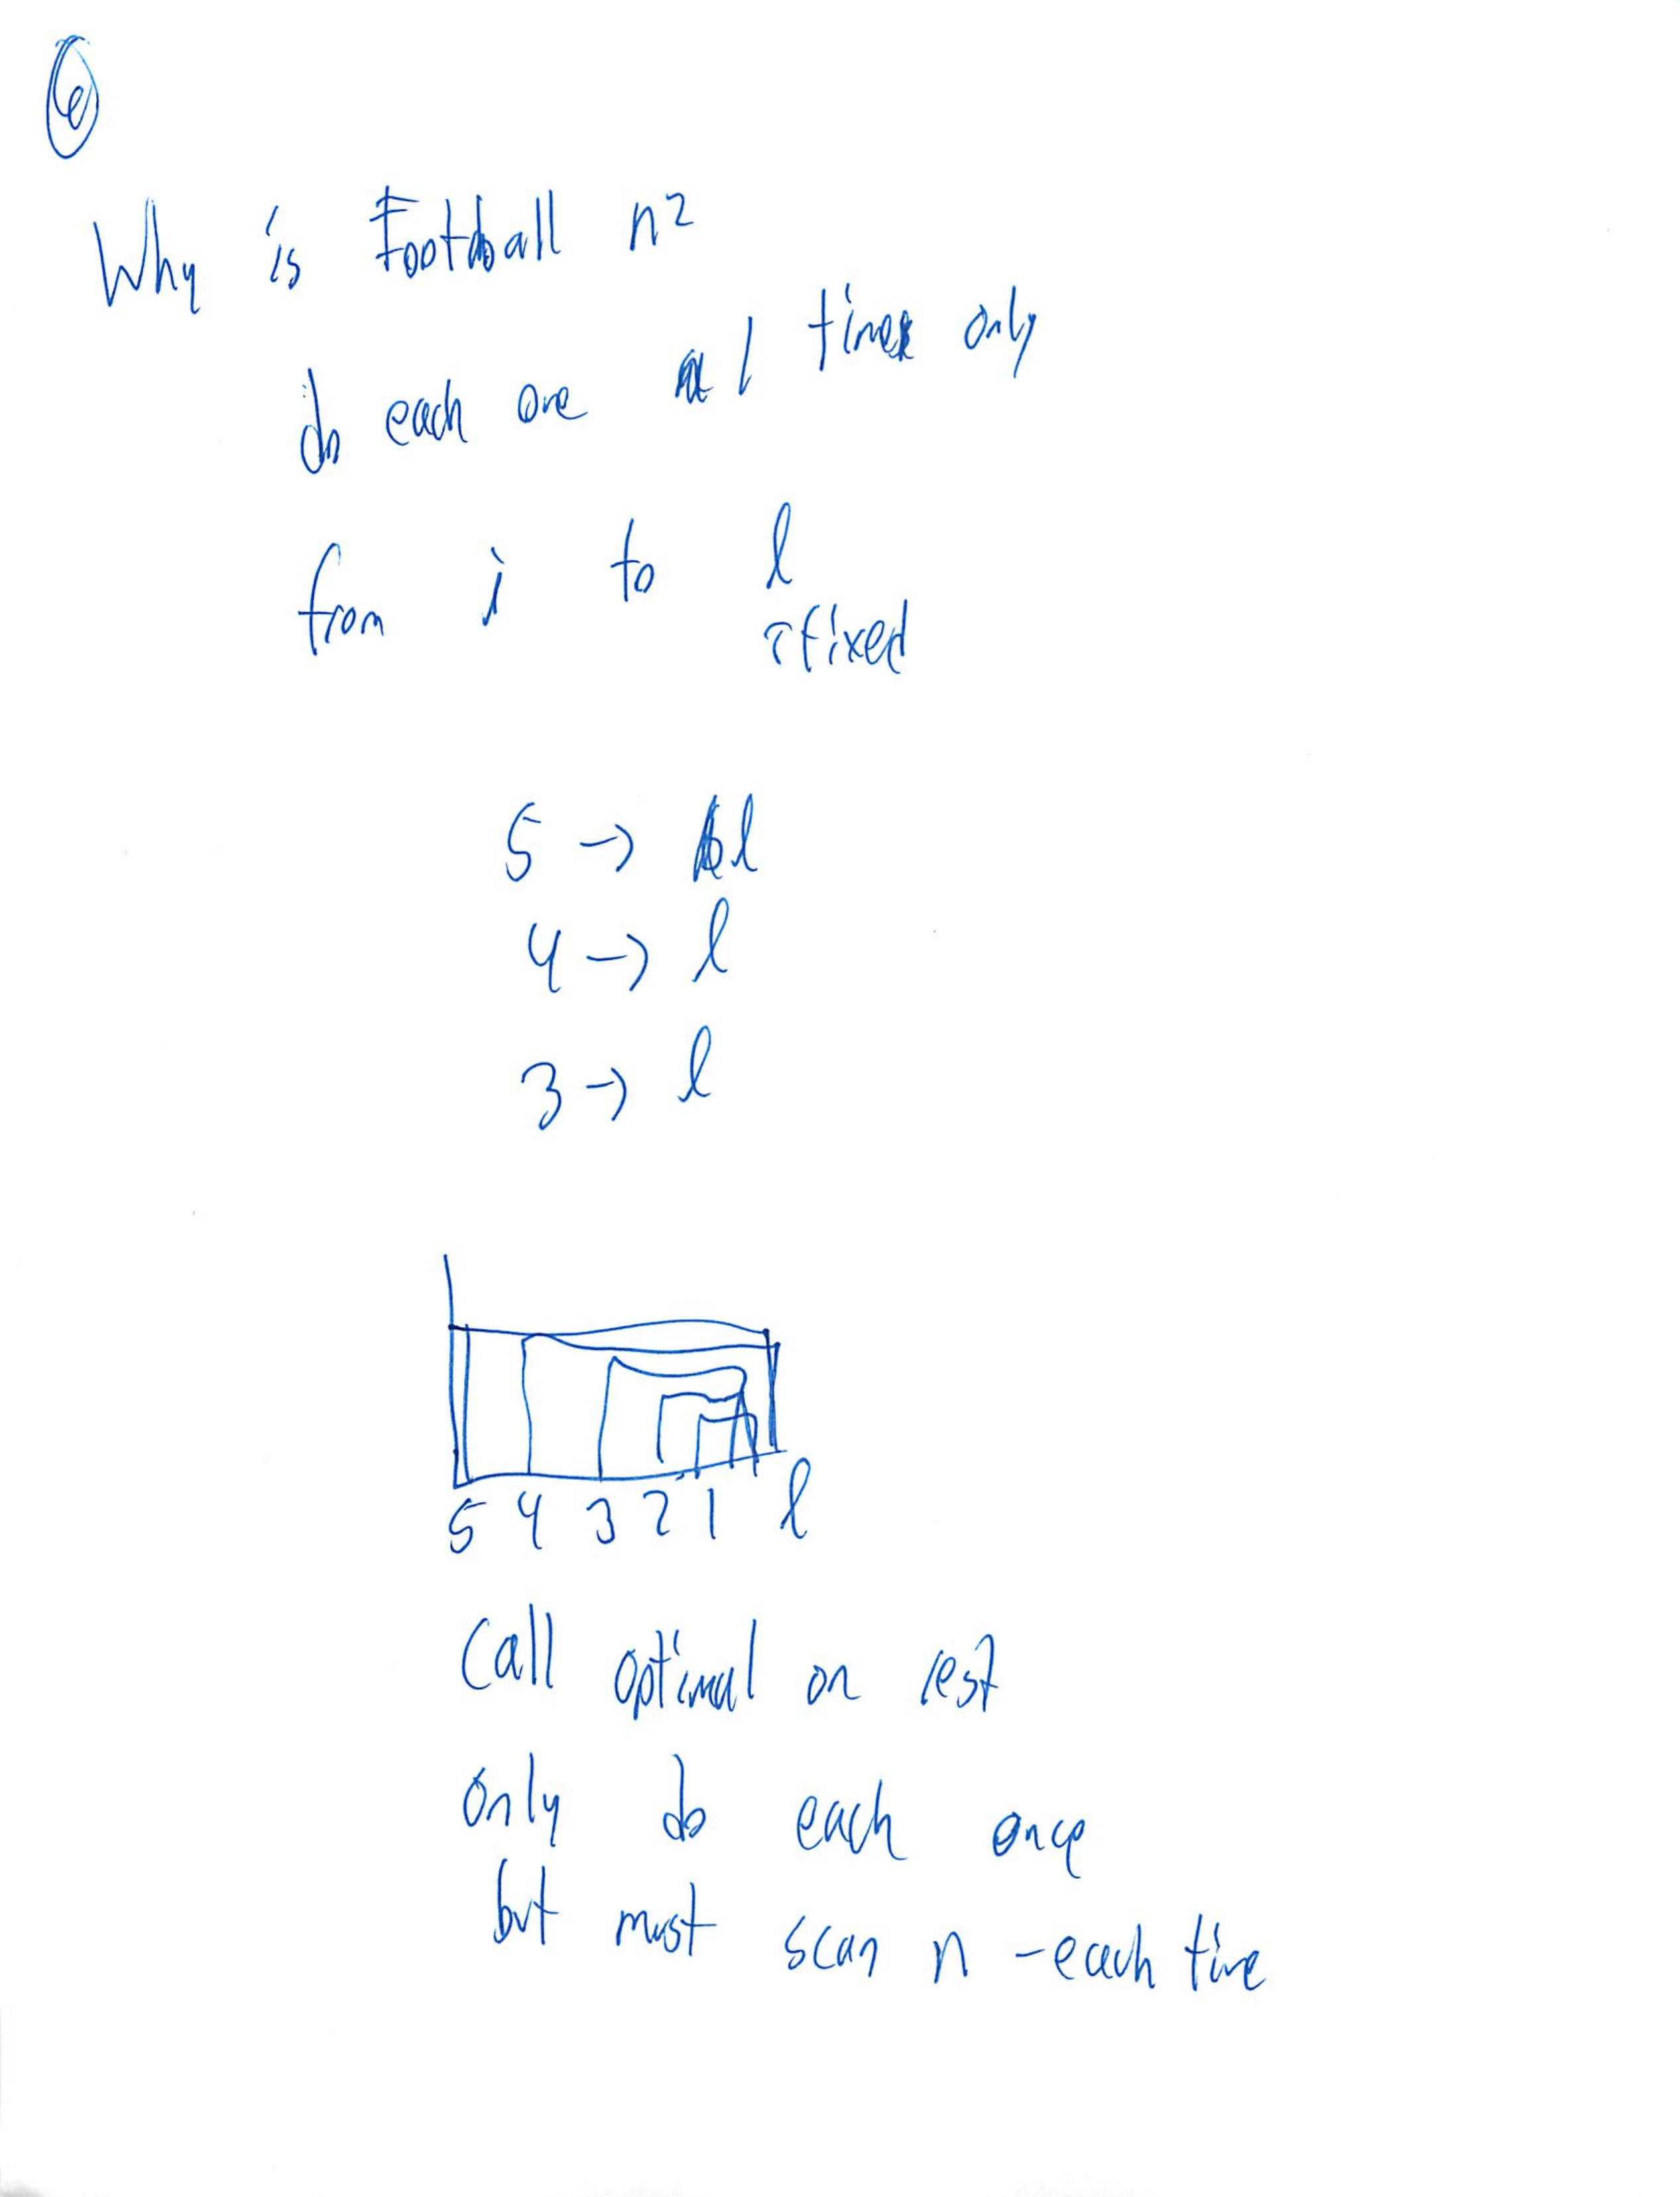 6
Why is Football n²
do each one 1 times only
from i to l
↑fixed
5 → l
4 → l
3 → l
5 4 3 2 1 l
Call optimal on rest
only do each once
but must scan n - each time